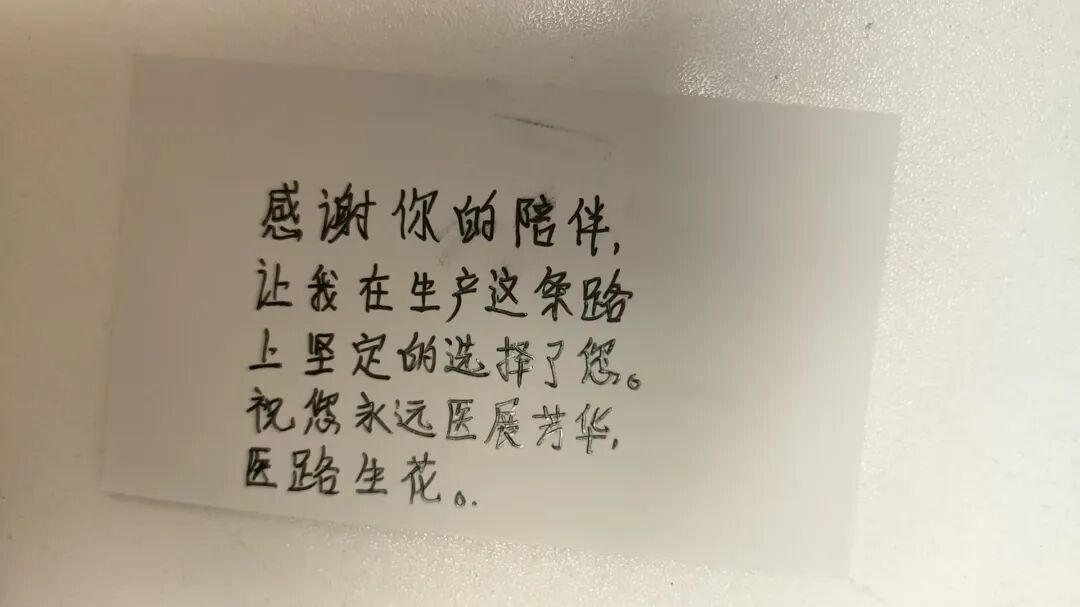 感谢你的陪伴,
让我在生产这条路
上坚定的选择了您。
祝您永远医展芳华,
医路生花。